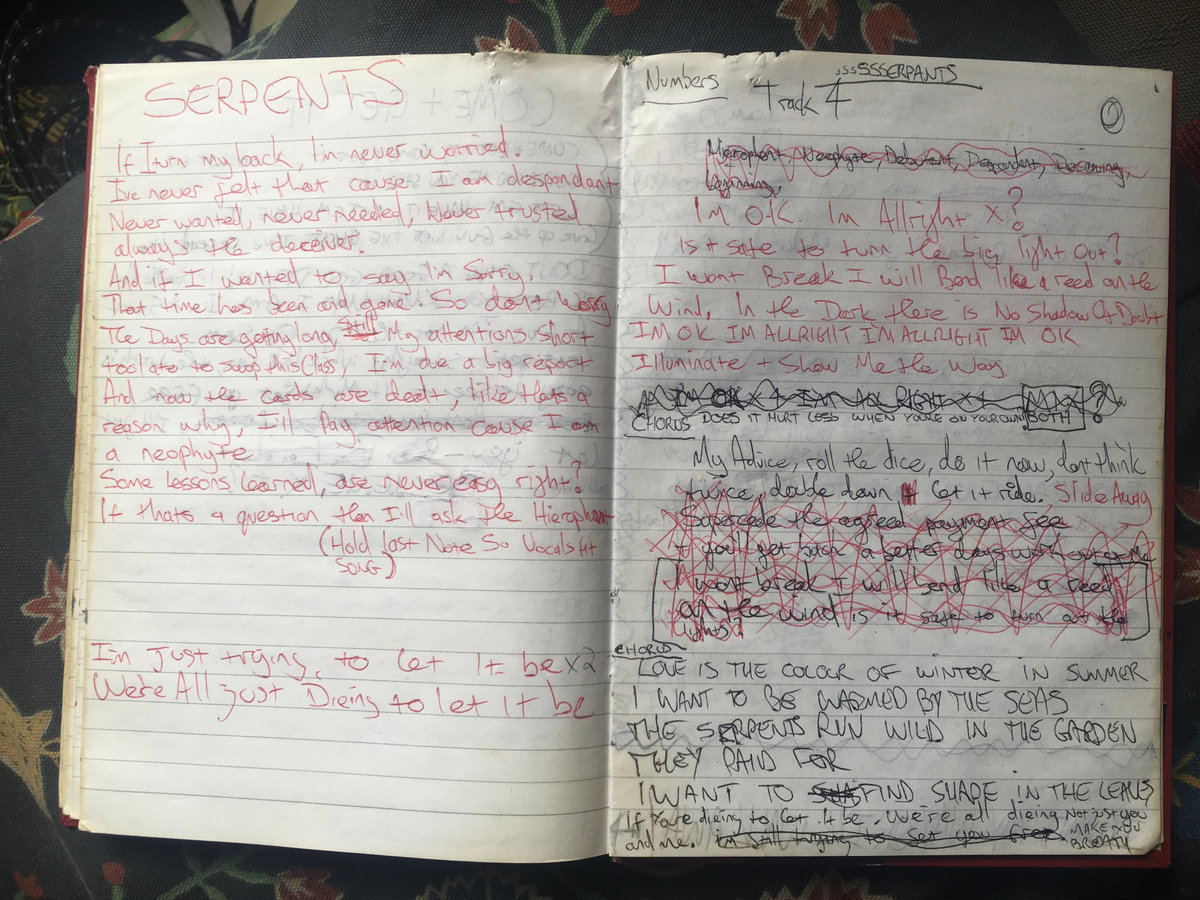 SERPENTS
If I turn my back, I'm never worried.
I've never felt that cause I am despondant
Never wanted, never needed, Never trusted
always the deceiver.
And if I wanted to say I'm Sorry.
That time has been and gone. So dont worry
The Days are getting long, Still My attentions short
too late to swap this Class, I'm due a big report
And now the cards are dealt, like thats a
reason why, I'll Pay attention cause I am
a neophyte
Some lessons learned, are never easy right?
If thats a question then I'll ask the Hierophant
(Hold last Note So Vocals fit
SONG)
I'm just trying to let it be x2
We're All just Dieing to let it be
Numbers
sssSSSERPANTS
Track 4
Hierophant, Neophyte, Debutant, Despondent, Decieving,
beginning,
Im O.K. Im Allright x?
Is it safe to turn the big light out?
I wont Break I will Bend like a reed on the
Wind, In the Dark there is No Shadow Of Doubt
IM OK IM ALLRIGHT I'M ALLRIGHT IM OK
Illuminate + Show Me the Way
I'M OK x4 I'M ALRIGHT x4 MIX ?
CHORUS DOES IT HURT LESS WHEN YOU'RE ON YOUR OWN BOTH
My Advice, roll the dice, do it now, dont think
twice, double down let it ride. Slide Away
Supercede the agreed payment fee
you'll get back a better days work out of me
I wont break I will bend like a reed
on the wind is it safe to turn out the
lights?
CHORUS
LOVE IS THE COLOUR OF WINTER IN SUMMER
I WANT TO BE WARMED BY THE SEAS
THE SERPENTS RUN WILD IN THE GARDEN
THEY PAID FOR
I WANT TO FIND SHADE IN THE LEAVES
If You're dieing to let it be. We're all dieing Not just you
and me. im still trying to set you free MAKE YOU
BREATH